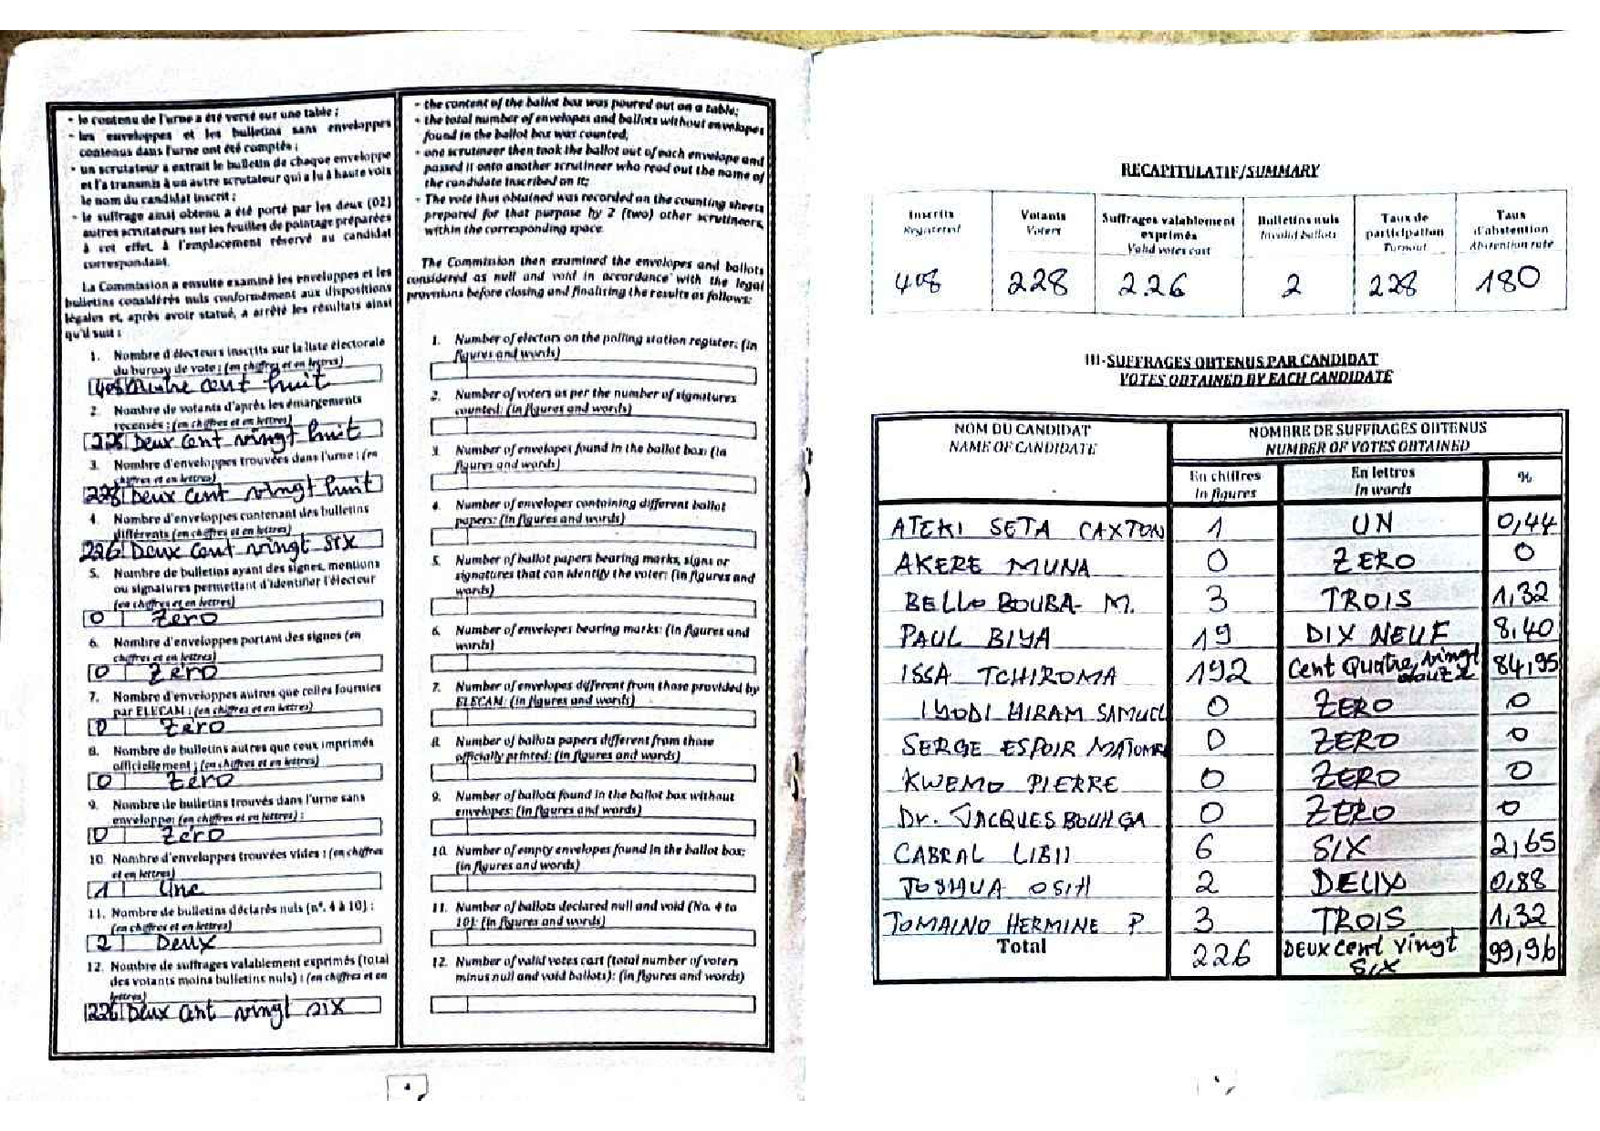 - le contenu de l'urne a été versé sur une table ;
- les enveloppes et les bulletins sans enveloppes
contenus dans l'urne ont été comptés ;
- un scrutateur a extrait le bulletin de chaque enveloppe
et l'a transmis à un autre scrutateur qui a lu à haute voix
le nom du candidat inscrit ;
- le suffrage ainsi obtenu a été porté par les deux (02)
autres scrutateurs sur les feuilles de pointage préparées
à cet effet, à l'emplacement réservé au candidat
correspondant.
La Commission a ensuite examiné les enveloppes et les
bulletins considérés nuls conformément aux dispositions
légales et, après avoir statué, a arrêté les résultats ainsi
qu'il suit :
1. Nombre d'électeurs inscrits sur la liste électorale
du bureau de vote : (en chiffres et en lettres)
408 cent huit
2. Nombre de votants d'après les émargements
recensés : (en chiffres et en lettres)
228 Deux cent vingt huit
3. Nombre d'enveloppes trouvées dans l'urne : (en
chiffres et en lettres)
228 Deux cent vingt huit
4. Nombre d'enveloppes contenant des bulletins
différents (en chiffres et en lettres)
226 Deux cent vingt six
5. Nombre de bulletins ayant des signes, mentions
ou signatures permettant d'identifier l'électeur
(en chiffres et en lettres)
0 Zero
6. Nombre d'enveloppes portant des signes (en
chiffres et en lettres)
0 Zéro
7. Nombre d'enveloppes autres que celles fournies
par ELECAM : (en chiffres et en lettres)
0 Zéro
8. Nombre de bulletins autres que ceux imprimés
officiellement : (en chiffres et en lettres)
0 Zéro
9. Nombre de bulletins trouvés dans l'urne sans
enveloppe: (en chiffres et en lettres) :
0 Zéro
10. Nombre d'enveloppes trouvées vides : (en chiffres
et en lettres)
1 Une
11. Nombre de bulletins déclarés nuls (n°. 4 à 10) :
(en chiffres et en lettres)
2 Deux
12. Nombre de suffrages valablement exprimés (total
des votants moins bulletins nuls) : (en chiffres et en
lettres)
226 Deux cent vingt six
- the content of the ballot box was poured out on a table;
- the total number of envelopes and ballots without envelopes
found in the ballot box was counted;
- one scrutineer then took the ballot out of each envelope and
passed it onto another scrutineer who read out the name of
the candidate inscribed on it;
- The vote thus obtained was recorded on the counting sheets
prepared for that purpose by 2 (two) other scrutineers,
within the corresponding space.
The Commission then examined the envelopes and ballots
considered as null and void in accordance with the legal
provisions before closing and finalising the results as follows:
1. Number of electors on the polling station register: (in
figures and words)
2. Number of voters as per the number of signatures
counted: (in figures and words)
3. Number of envelopes found in the ballot box: (in
figures and words)
4. Number of envelopes containing different ballot
papers: (in figures and words)
5. Number of ballot papers bearing marks, signs or
signatures that can identify the voter: (in figures and
words)
6. Number of envelopes bearing marks: (in figures and
words)
7. Number of envelopes different from those provided by
ELECAM: (in figures and words)
8. Number of ballots papers different from those
officially printed: (in figures and words)
9. Number of ballots found in the ballot box without
envelopes: (in figures and words)
10. Number of empty envelopes found in the ballot box:
(in figures and words)
11. Number of ballots declared null and void (No. 4 to
10): (in figures and words)
12. Number of valid votes cast (total number of voters
minus null and void ballots): (in figures and words)
RECAPITULATIF/SUMMARY
Inscrits Votants Suffrages valablement Bulletins nuls Taux de Taux
Registered Voters exprimés Invalid ballots participation d'abstention
Valid votes cast Turnout Abstention rate
408 228 226 2 228 180
III-SUFFRAGES OBTENUS PAR CANDIDAT
VOTES OBTAINED BY EACH CANDIDATE
NOM DU CANDIDAT NOMBRE DE SUFFRAGES OBTENUS
NAME OF CANDIDATE NUMBER OF VOTES OBTAINED
En chiffres En lettres %
In figures In words
ATEKI SETA CAXTON 1 UN 0,44
AKERE MUNA 0 ZERO 0
BELLO BOUBA M. 3 TROIS 1,32
PAUL BIYA 19 DIX NEUF 8,40
ISSA TCHIROMA 192 Cent Quatre vingt douze 84,95
IYODI HIRAM SAMUEL 0 ZERO 0
SERGE ESPOIR MATOMBA 0 ZERO 0
KWEMO PIERRE 0 ZERO 0
Dr. JACQUES BOUHGA 0 ZERO 0
CABRAL LIBII 6 SIX 2,65
JOSHUA OSIH 2 DEUX 0,88
TOMAINO HERMINE P 3 TROIS 1,32
Total 226 DEUX cent vingt SIX 99,96